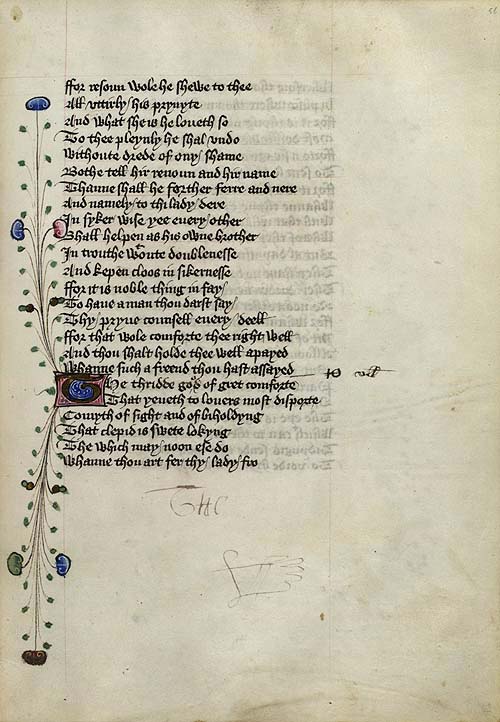 ffor resoun wole he shewe to thee
All vttirly his pryuyte
And what she is he loueth so
To thee pleynly he shal vndo
Withoute drede of ony shame
Bothe tell hir renoun and hir name
Thanne shall he forther ferre and nere
And namely to thi lady dere
In syker wise yee euery other
Shall helpen as his owne brother
In trouthe woute doublenesse
And kepen cloos in sikernesse
ffor it is noble thing in fay
To haue a man thou darst say
Thy pryue counsell euery deell
ffor that wole comforte thee right well
And thou shalt holde thee well apayed
Whanne such a freend thou hast assayed
The thridde good of gret comforte
That yeueth to louers most disporte
Comyth of sight and of biholdyng
That clepid is swete lokyng
The which may noon ese do
Whanne thou art fer thy lady fro